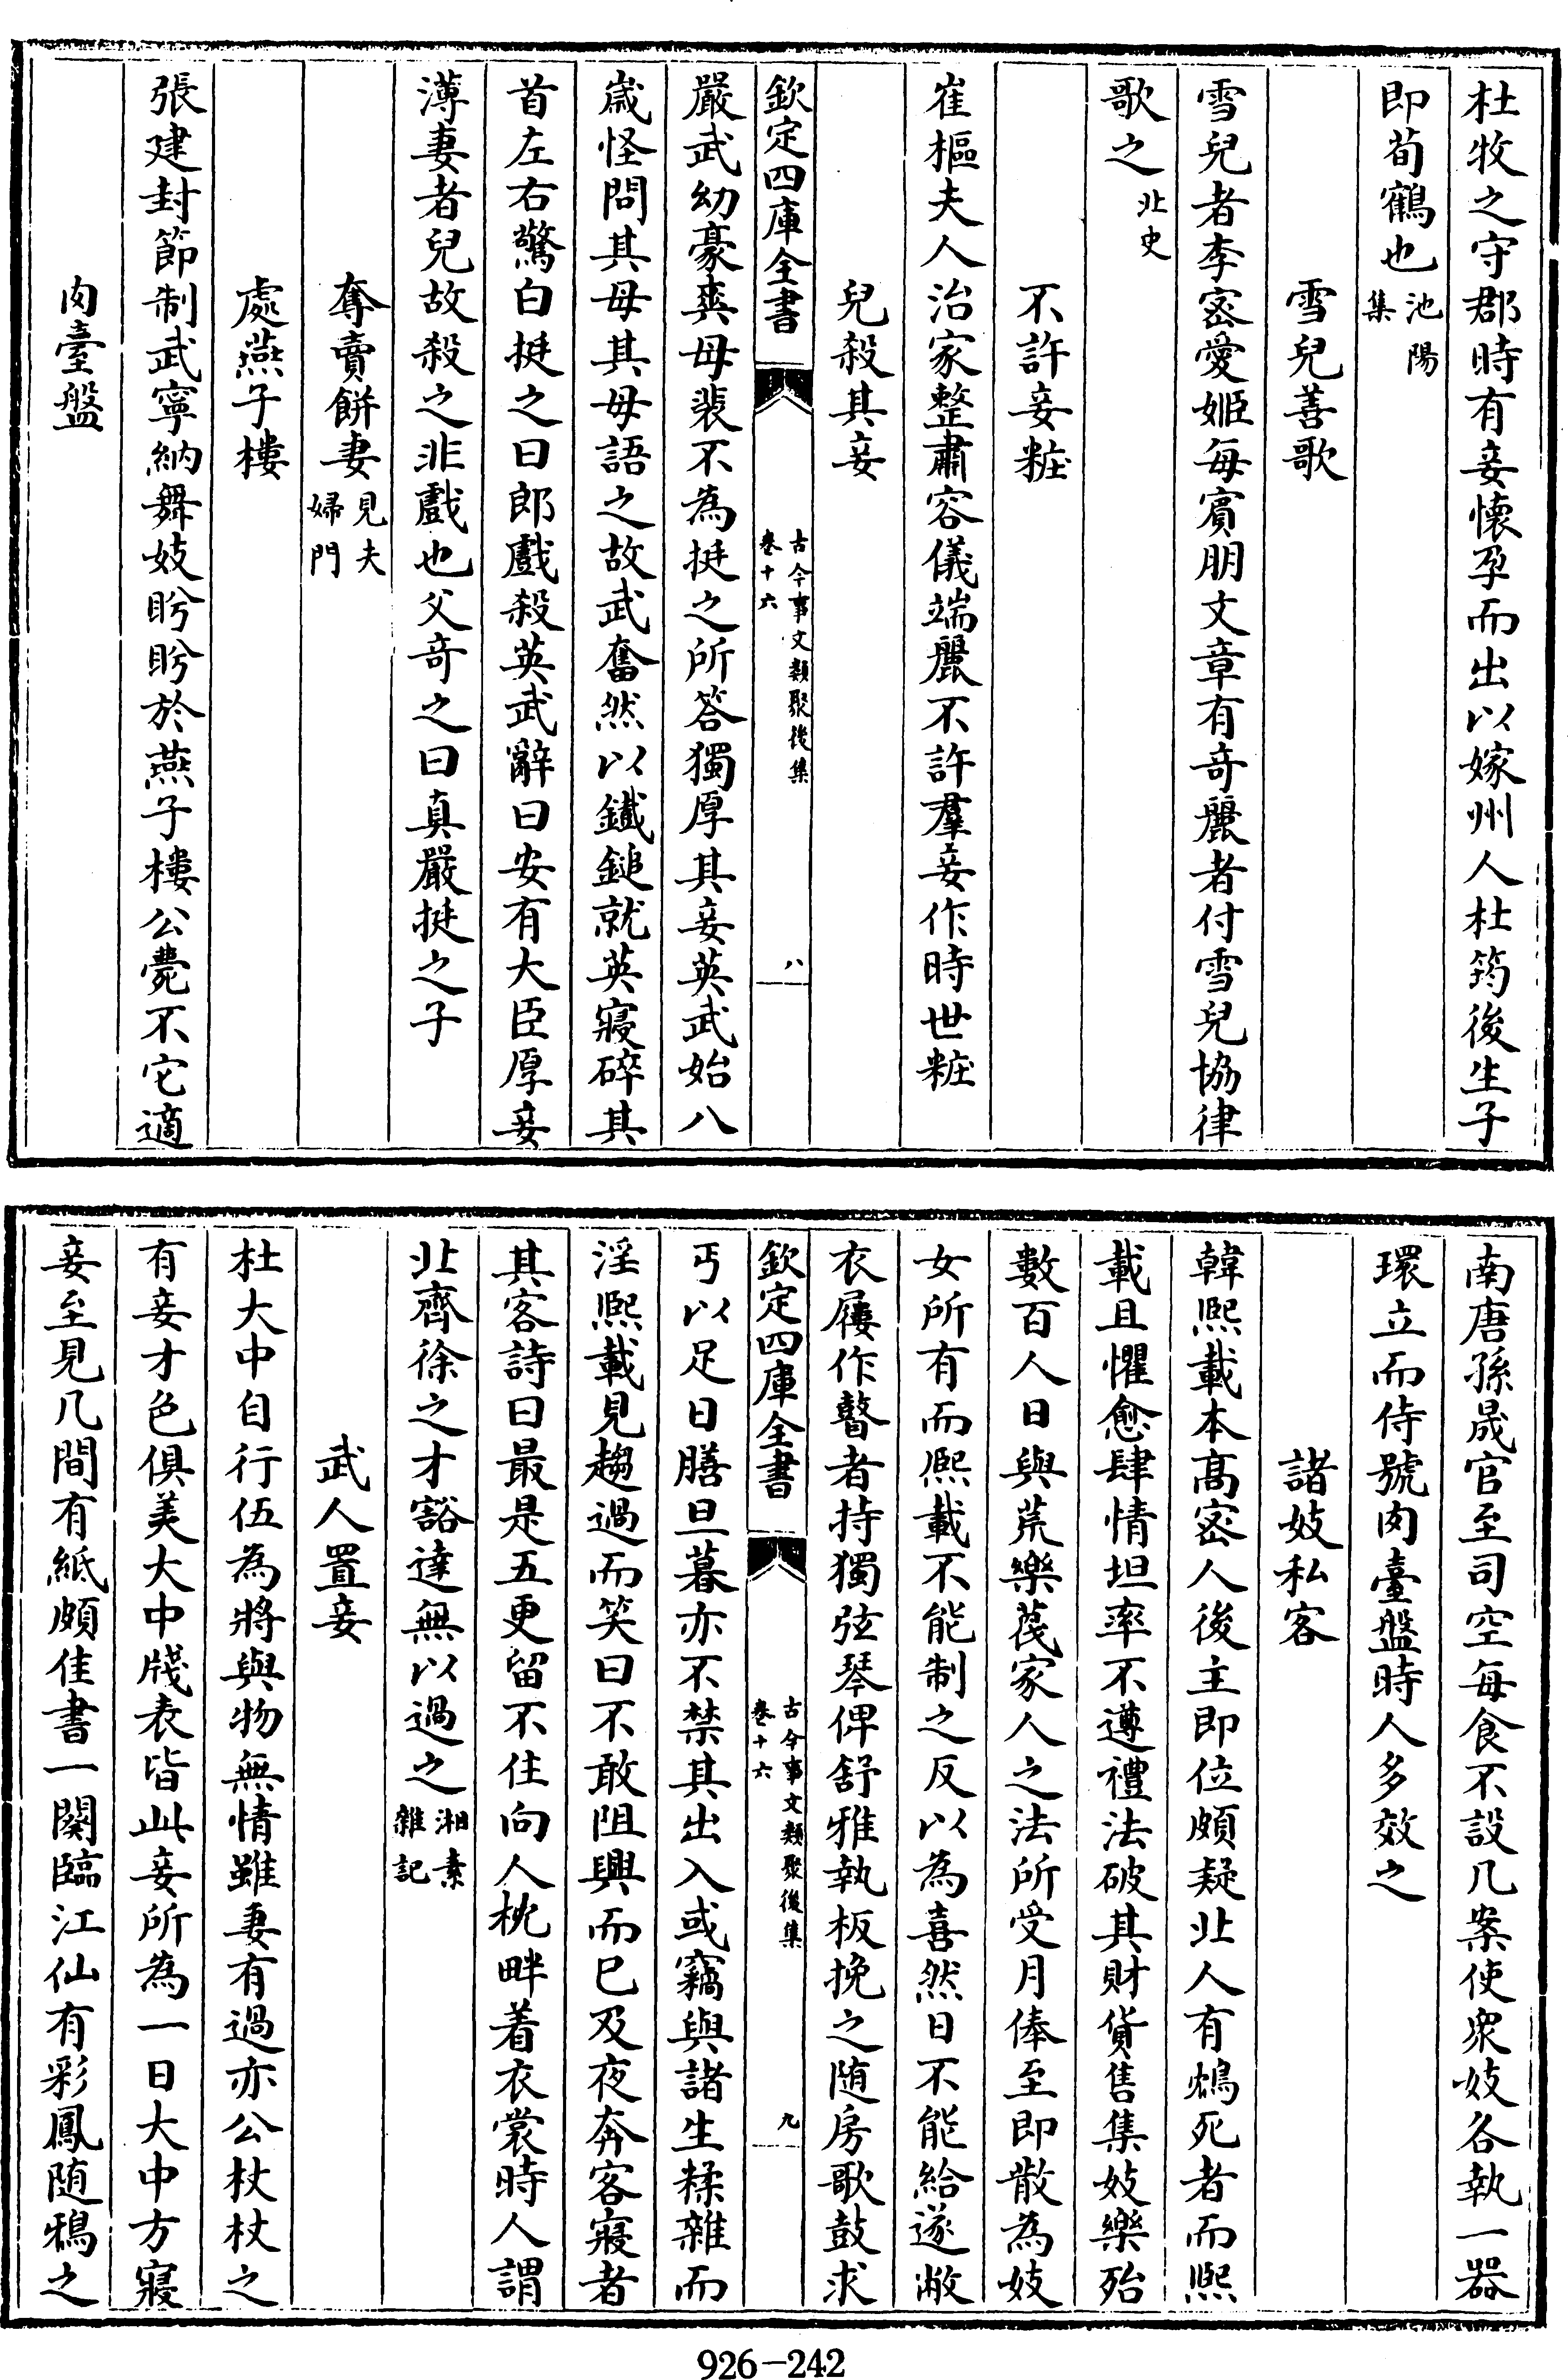 杜牧之守郡時有妾懷孕而出以嫁州人杜筠後生子
即荀鶴也池陽集
雪兒善歌
雪兒者李密愛姬每賓朋文章有奇麗者付雪兒協律
歌之北史
不許妾粧
崔樞夫人治家整肅容儀端麗不許羣妾作時世粧
兒殺其妾
欽定四庫全書
古今事文類聚後集
卷十六
八
嚴武幼豪爽母裴不為挺之所答獨厚其妾英武始八
歲怪問其母其母語之故武奮然以鐵鎚就英寢碎其
首左右驚白挺之曰郎戲殺英武辭曰安有大臣厚妾
薄妻者兒故殺之非戲也父奇之曰真嚴挺之子
奪賣餅妻見夫婦門
處燕子樓
張建封節制武寧納舞妓盻盻於燕子樓公薨不它適
肉臺盤
南唐孫晟官至司空每食不設几案使衆妓各執一器
環立而侍號肉臺盤時人多效之
諸妓私客
韓熙載本高密人後主即位頗疑北人有鴆死者而熙
載且懼愈肆情坦率不遵禮法破其財貨售集妓樂殆
數百人日與荒樂蔑家人之法所受月俸至即散為妓
女所有而熙載不能制之反以為喜然日不能給遂敝
衣屨作瞽者持獨弦琴俾舒雅執板挽之随房歌鼓求
欽定四庫全書
古今事文類聚後集
卷十六
九
丐以足日膳旦暮亦不禁其出入或竊與諸生糅雜而
淫熙載見趨過而笑曰不敢阻興而已及夜奔客寢者
其客詩曰最是五更留不住向人枕畔着衣裳時人謂
北齊徐之才豁達無以過之湘素雜記
武人置妾
杜大中自行伍為將與物無情雖妻有過亦公杖杖之
有妾才色俱美大中牋表皆此妾所為一日大中方寢
妾至見几間有紙頗佳書一闋臨江仙有彩鳳随鴉之
926-242